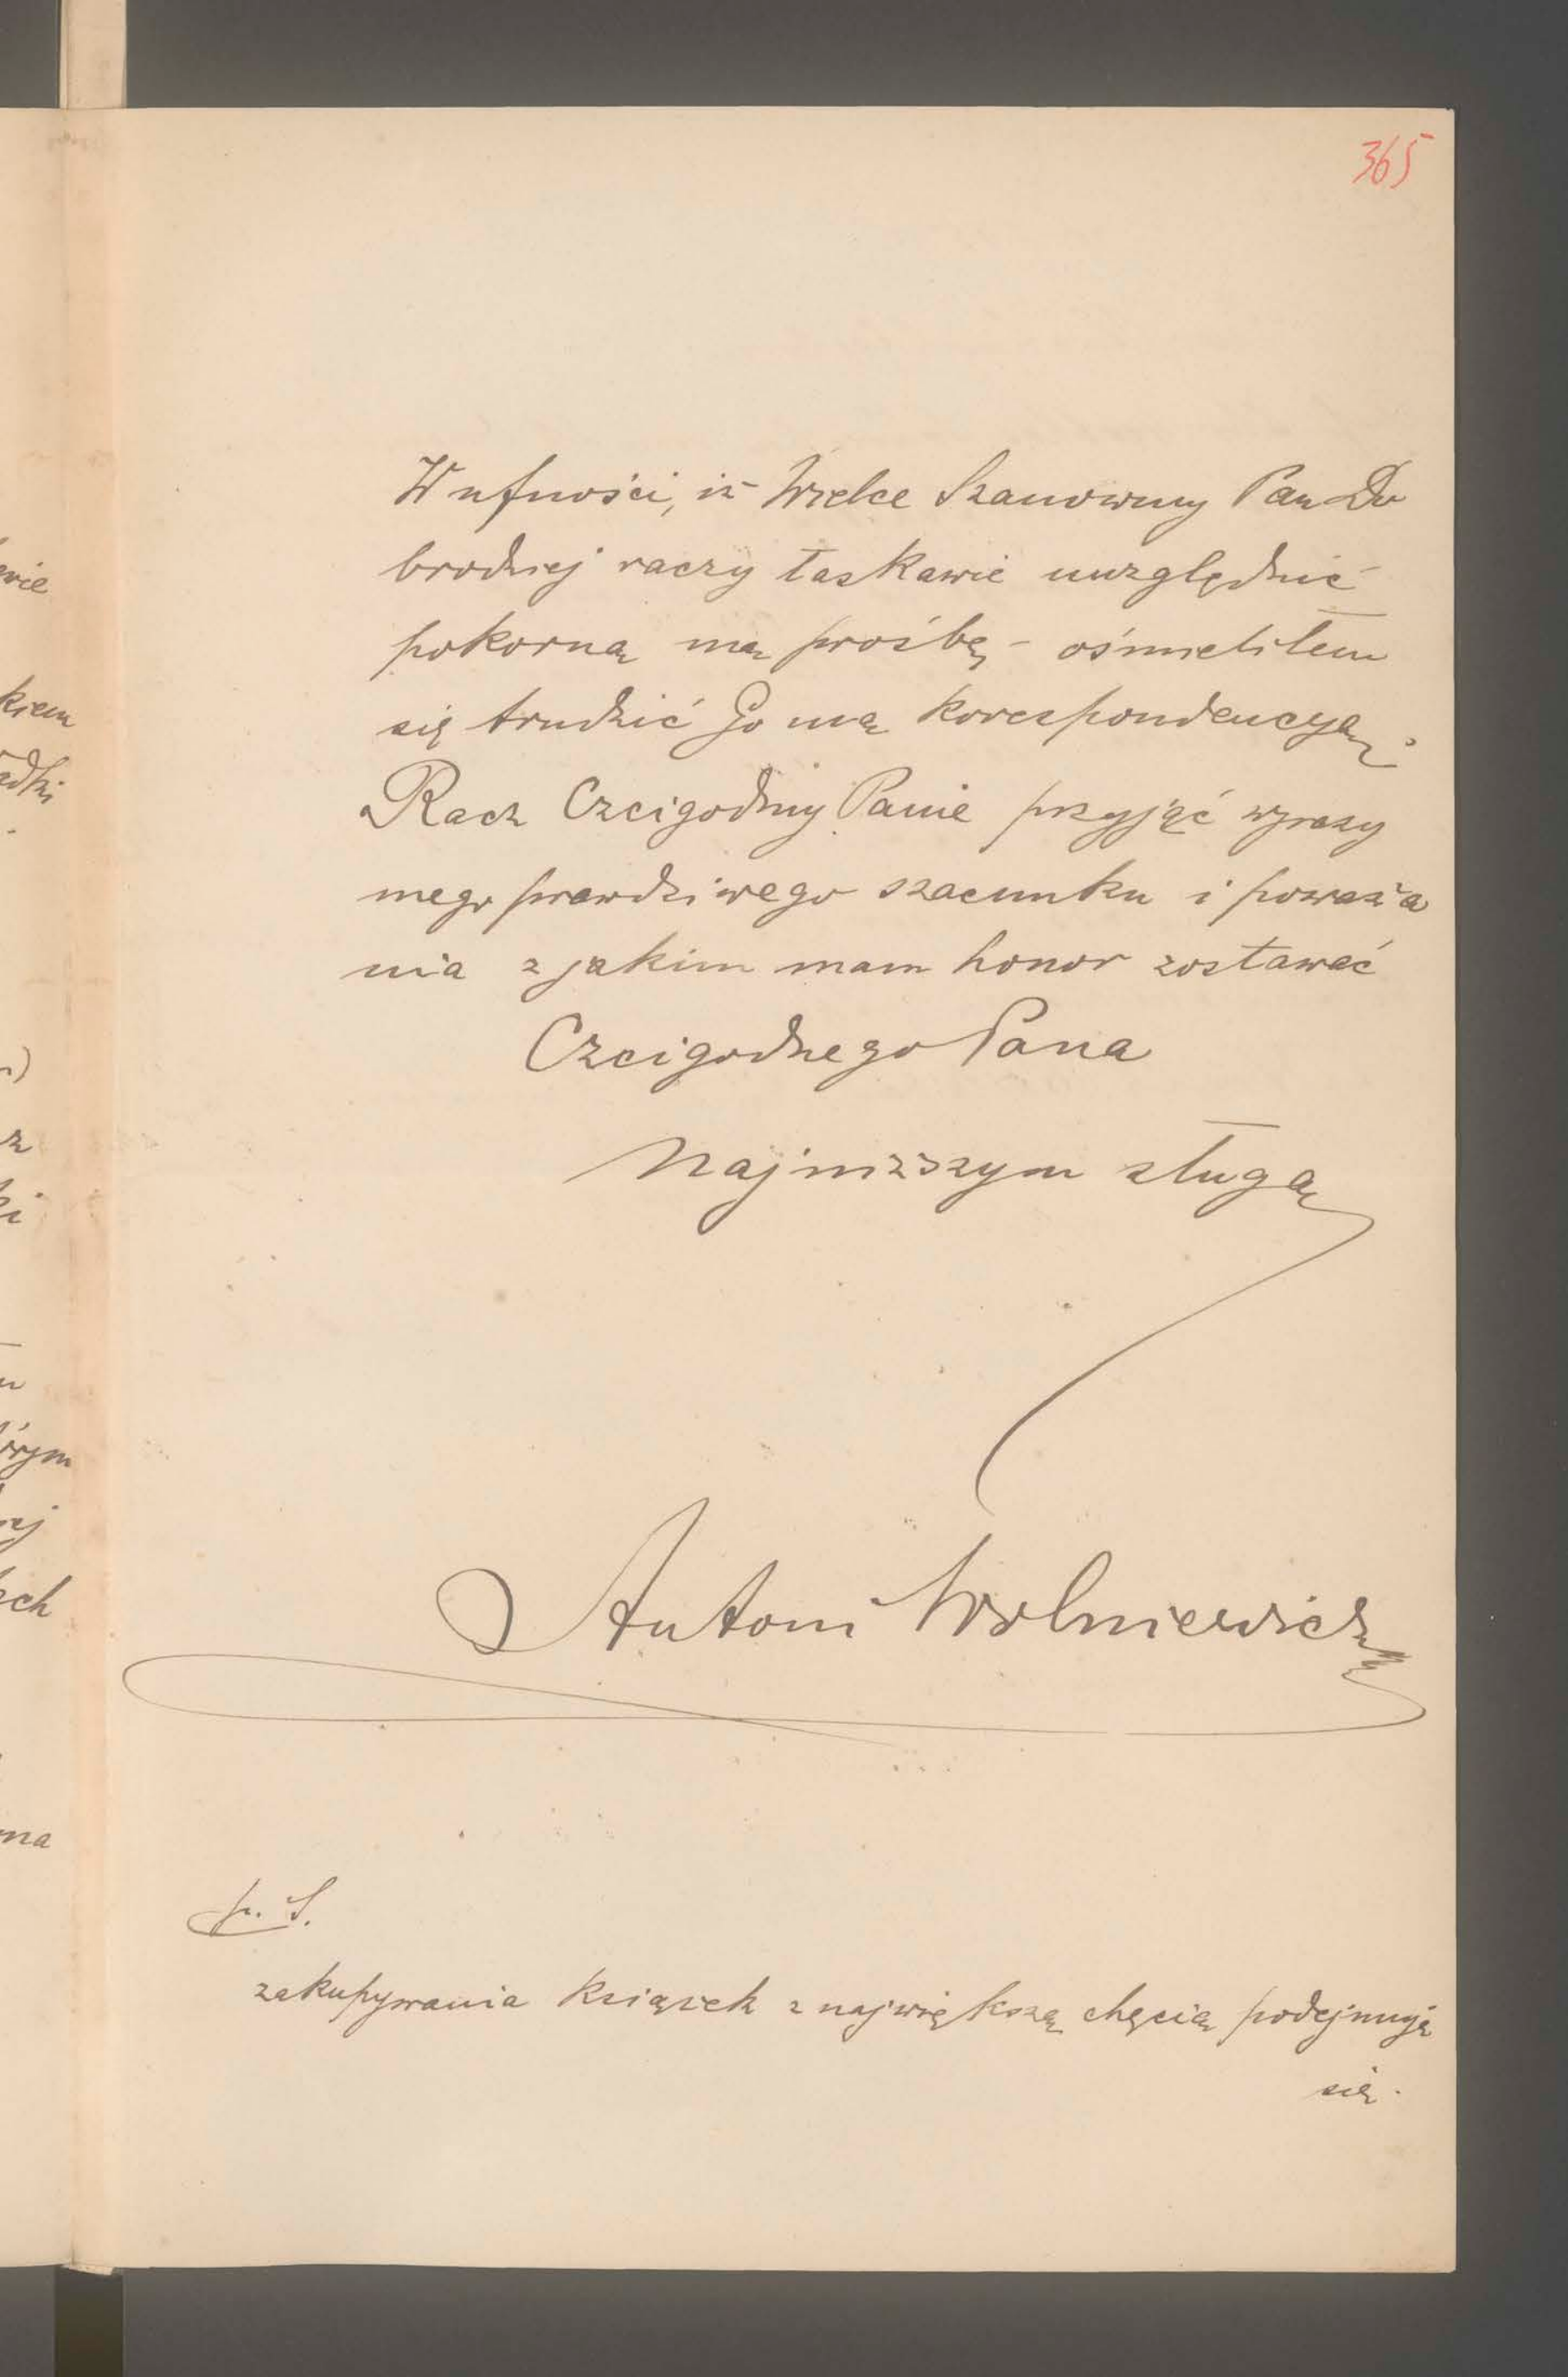 365
W ufności, iż Wielce Szanowny Pan Do
brodziej raczy łaskawie uwzględnić
pokorną mą prośbę – ośmieliłem
się trudzić Go mą korespondencyą.
Racz Czcigodny Panie przyjąć wyrazy
mego prawdziwego szacunku i poważa
nia z jakim mam honor zostawać
Czcigodnego Pana
Najniższym sługą
Antoni Wolniewicz
p. S.
zakupywania książek z największą chęcią podejmuję
się.